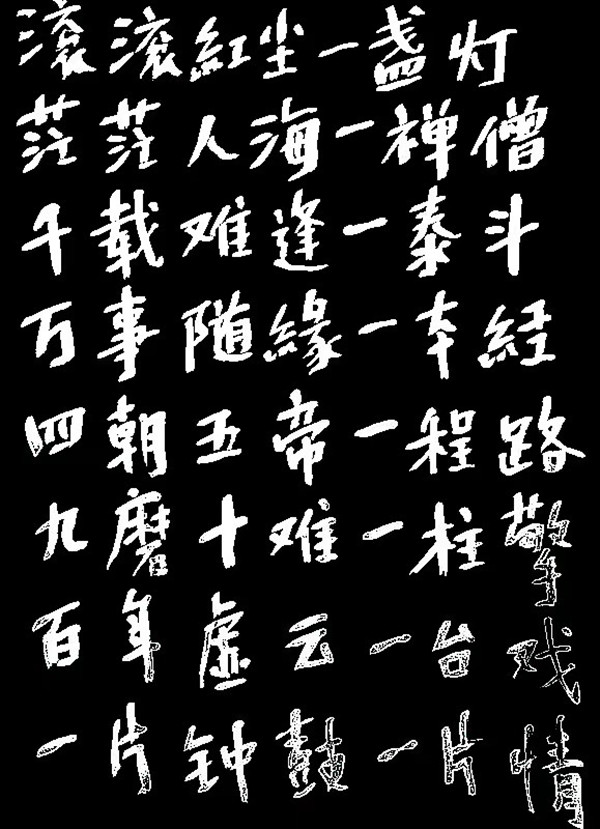 滚滚紅尘一盏灯
茫茫人海一禅僧
千载难逢一泰斗
万事随缘一本経
四朝五帝一程路
九磨十难一柱擎
百年虚云一台戏
一片钟鼓一片情